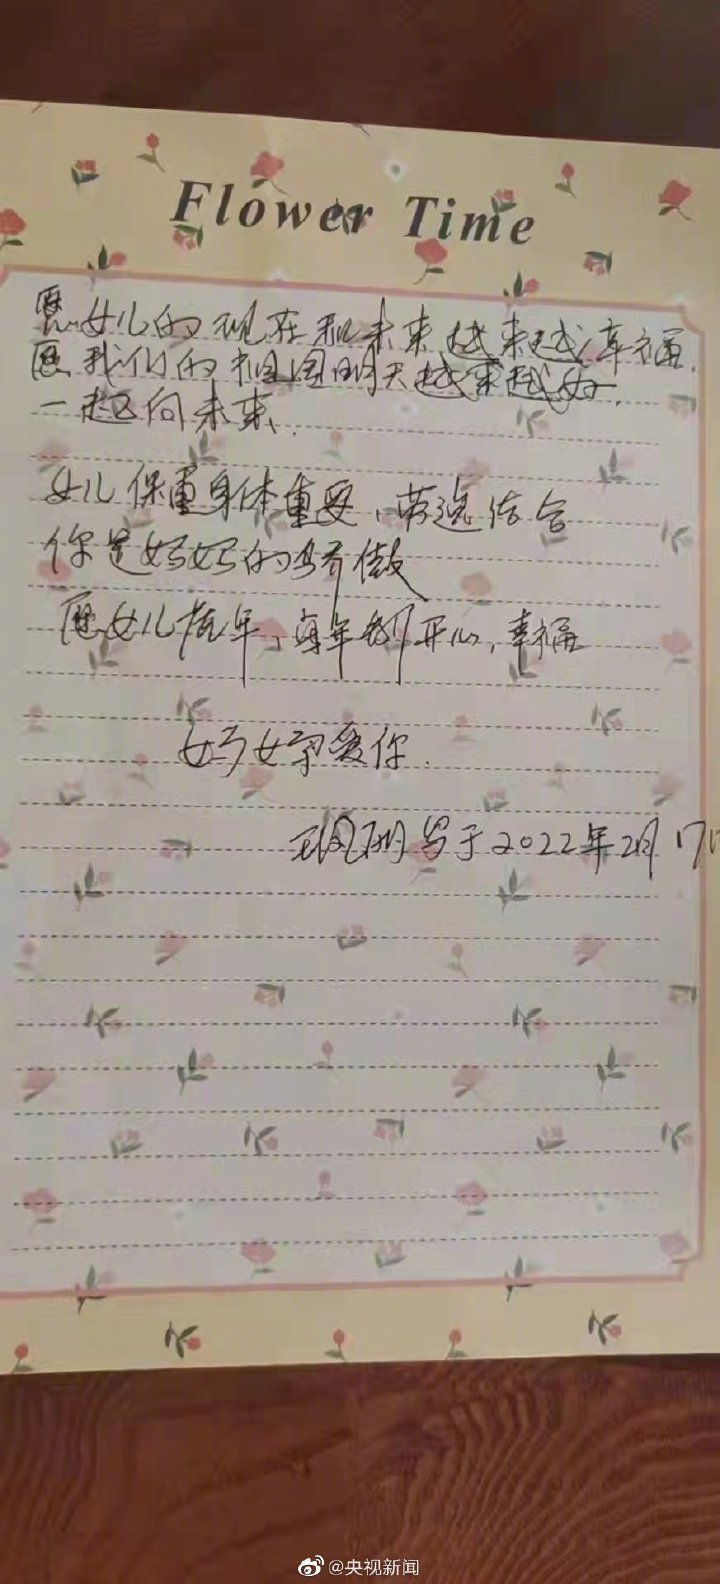 Flower Time
愿女儿的现在和未来越来越幸福.
愿我们的祖国明天越来越好.
一起向未来.
女儿保重身体重要,劳逸结合
你是妈妈的骄傲
愿女儿虎年,每年都开心,幸福
妈妈爱你.
写于2022年2月17日
@央视新闻